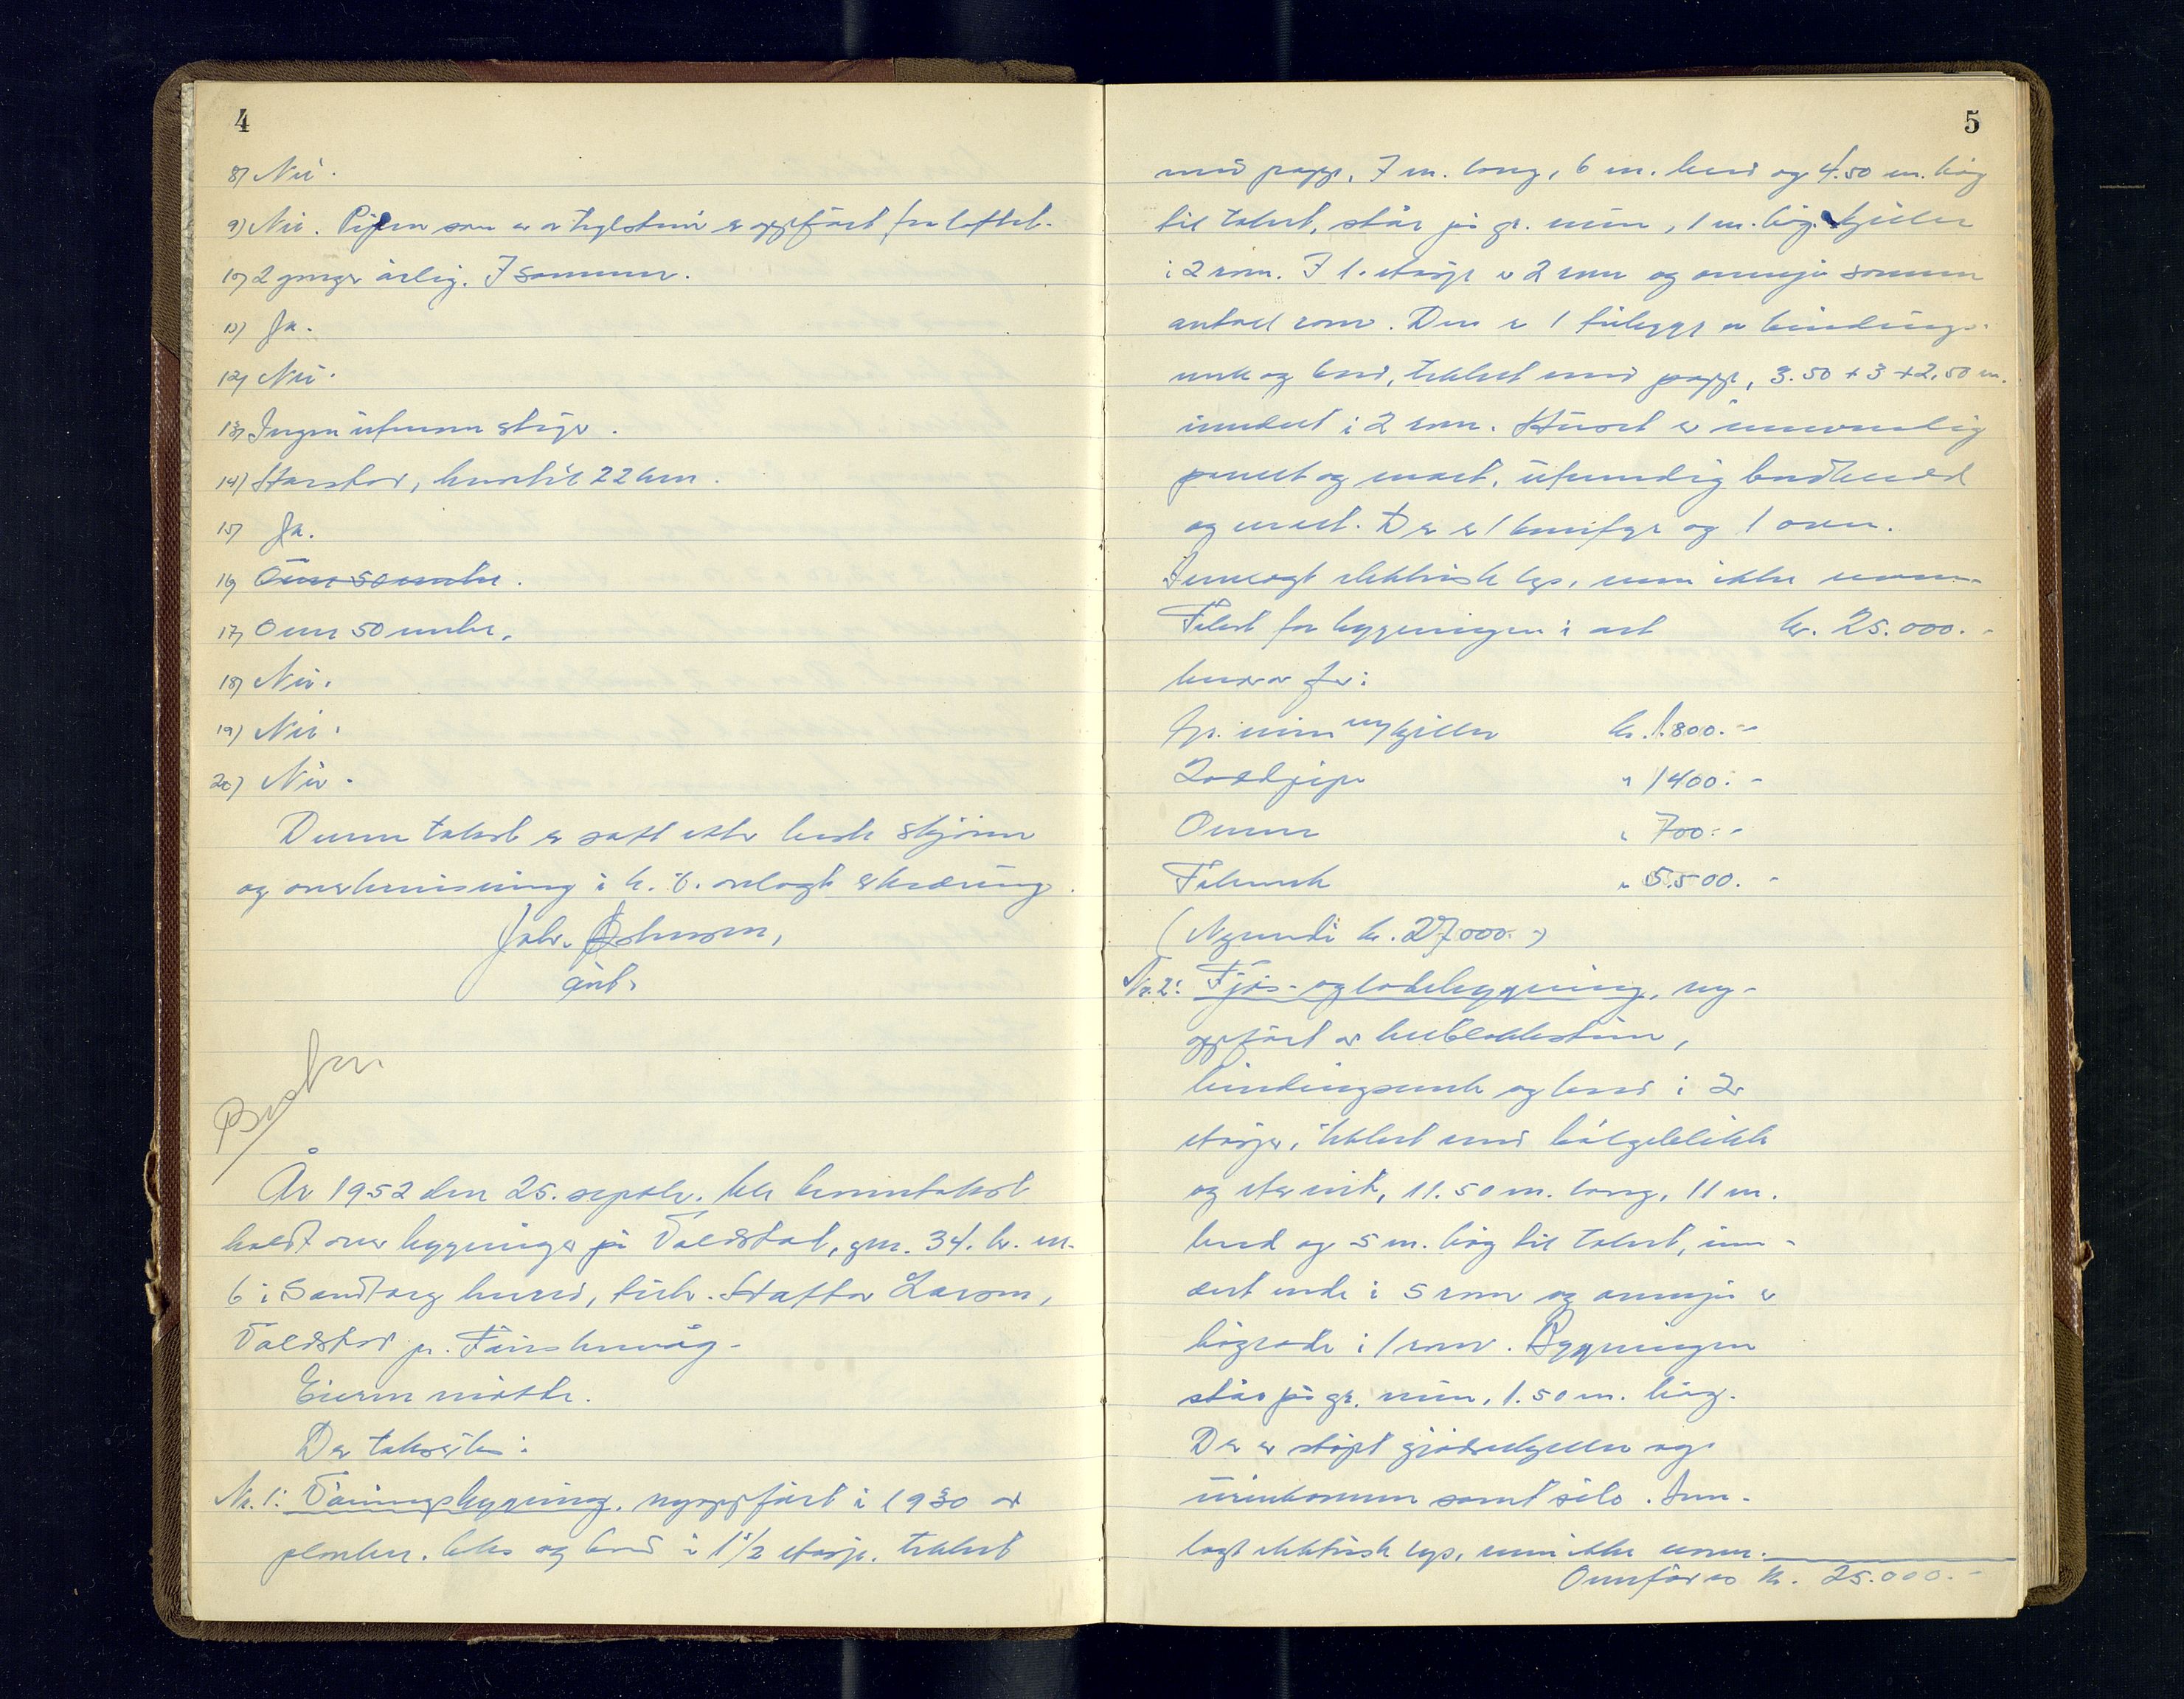 4
8) Nei.
9) Nei. Pipen som er av teglstein er oppført fra loftet.
10) 2 ganger årlig. I sommer.
11) Ja.
12) Nei.
13) Ingen utvunn stige.
14) Harstad, hvortil 22 km.
15) Ja.
16) Over 50 meter.
17) Over 50 meter.
18) Nei.
19) Nei.
20) Nei.
Denne takst er satt etter beste skjønn
og overbevisning i h. t. avlagt erklæring.
Johs. Johnsen,
År 1952 den 25. septbr. ble branntakst
holdt over bygninger på Voldstad, gnr. 34. br. nr.
6 i Sandtorg herred, tilh. Larsen,
Voldstad pr. Fauskevåg.
Eieren møtte.
Der takseres:
Nr. 1: Våningsbygning, nyoppført i 1930 av
planker, og bord i 1 1/2 etasje, tekket
5
med papp, 7 m. lang, 6 m. bred og 4.50 m. høg
til taket, står på gr. mur, 1 m. høg. Kjeller
i 2 rom. I 1. etasje er 2 rom og ovenpå samme
antall rom. Der er 1 tilbygg av bindings-
verk og bord, tekket med papp, 3.50 + 3 + 2,50 m.
inndelt i 2 rom. Huset er innvendig
panelt og malt, utvendig bordkledd
og malt. Der er 1 komfyr og 1 ovn.
Innlagt elektrisk lys, men ikke varme.
Takst for bygningen i alt kr. 25.000.-
herav for:
Gr. mur m/kjeller kr. 1.800.-
Loddpipe " 1400.-
Ovner " 700.-
Takverk " 5.500.-
(Nyverdi kr. 27000.-)
Nr. 2: Fjøs- og låvebygning, ny-
oppført av hulblokkstein,
bindingsverk og bord i 2
etasjer, tekket med bølgeblikk
og eternit, 11.50 m. lang, 11 m.
bred og 5 m. høg til taket, inn-
delt nede i 5 rom og ovenpå er
i 1 rom. Bygningen
står på gr. mur, 1.50 m. høg.
Der er støpt gjødselkjeller og
urinkummer samt silo. Inn-
lagt elektrisk lys, men ikke varme.
Overføres kr. 25.000.-